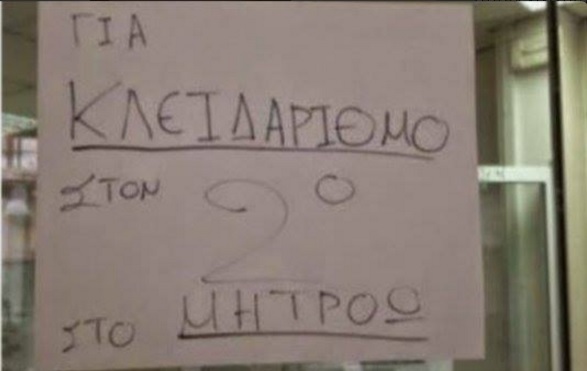 ΓΙΑ
ΚΛΕΙΔΑΡΙΘΜΟ
ΣΤΟΝ 2º
ΣΤΟ ΜΗΤΡΟΟ